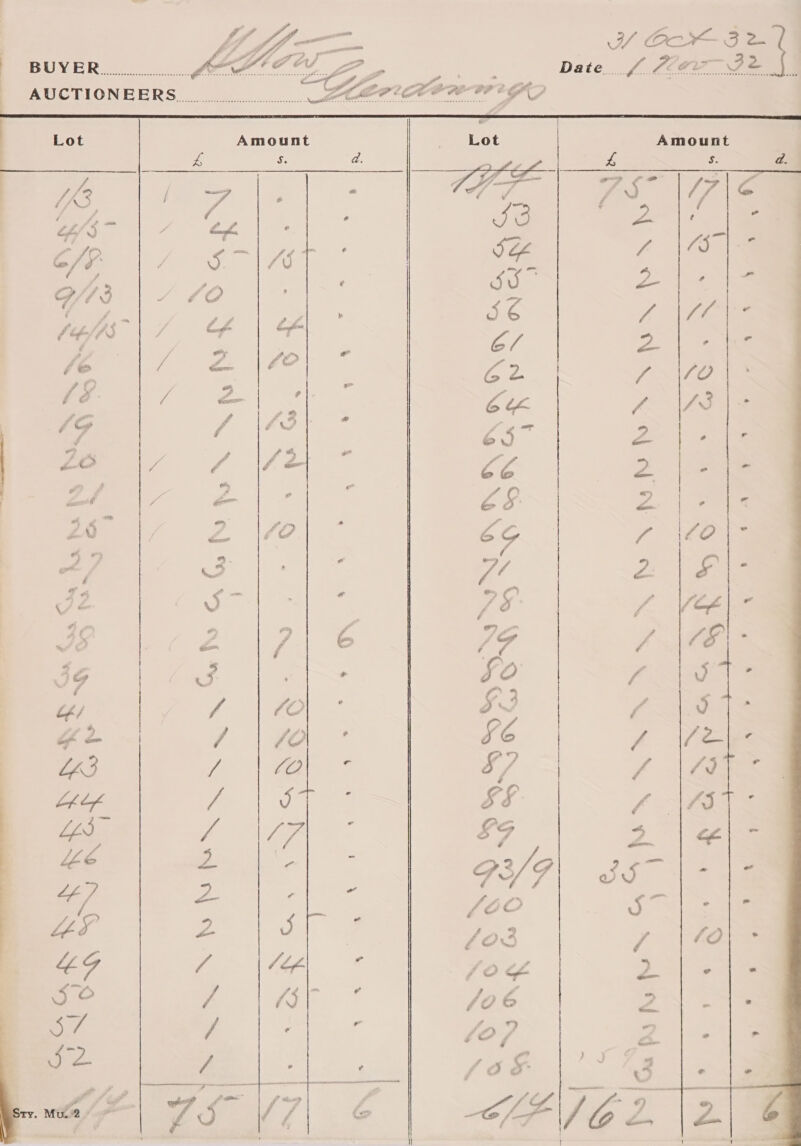 31 Oct 32 }
BUYER Date 1 Nov 32 }
AUCTIONEERS Glendinings
Lot Amount £ s. d.
1/3 / 7 - -
4/5 / 4 - -
6/8 / 5 15 -
9/13 / 10 - -
14/15 / 4 4 -
16 / 2 10 -
18 / 2 - -
19 1 13 -
20 / 1 12 -
21 / 2 - -
25 / 2 10 -
27 3 - -
32 5 - -
38 / 2 7 6
39 / 3 - -
41 1 10 -
42 1 10 -
43 1 10 -
44 1 5 -
45 1 17 -
46 2 - -
47 2 - -
48 2 5 -
49 1 14 -
50 1 15 -
51 1 - -
52 1 - -
C/F 75 17 6
Sty. Mu. 2
Lot Amount £ s. d.
B/F 75 17 6
53 2 - -
54 1 15 -
55 2 - -
56 1 11 -
61 2 - -
62 1 10 -
64 1 13 -
65 2 - -
66 2 - -
68 2 - -
69 1 10 -
71 2 8 -
78 1 14 -
79 1 18 -
80 1 5 -
83 1 5 -
86 1 12 -
87 1 15 -
88 1 15 -
89 2 4 -
93/9 35 - -
100 5 - -
103 1 10 -
104 2 - -
106 2 - -
107 2 - -
108 3 - -
C/F 162 2 6